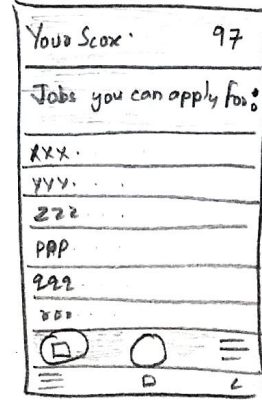 Your Score. 97
Jobs you can apply for:
xxx.
yyy. . .
zzz .
PPP
qqq